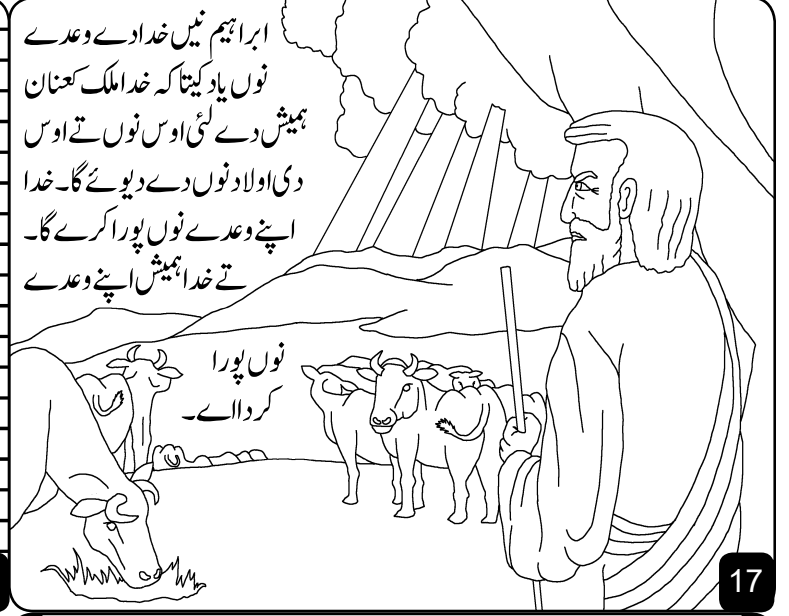 ابراہیم نیں خدا دے وعدے
نوں یاد کیتا کہ خدا ملک کعنان
ہمیش دے لئی اوس نوں تے اوس
دی اولاد نوں دے دیوئے گا۔ خدا
اپنے وعدے نوں پورا کرے گا۔
تے خدا ہمیش اپنے وعدے
نوں پورا
کردا اے۔
17